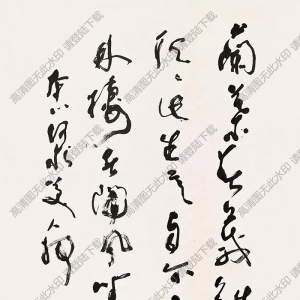 蘭葉春葳蕤
欣欣此生意自尔
林棲者聞風坐
本心何求美人折
高清图无此水印 请登陆下载